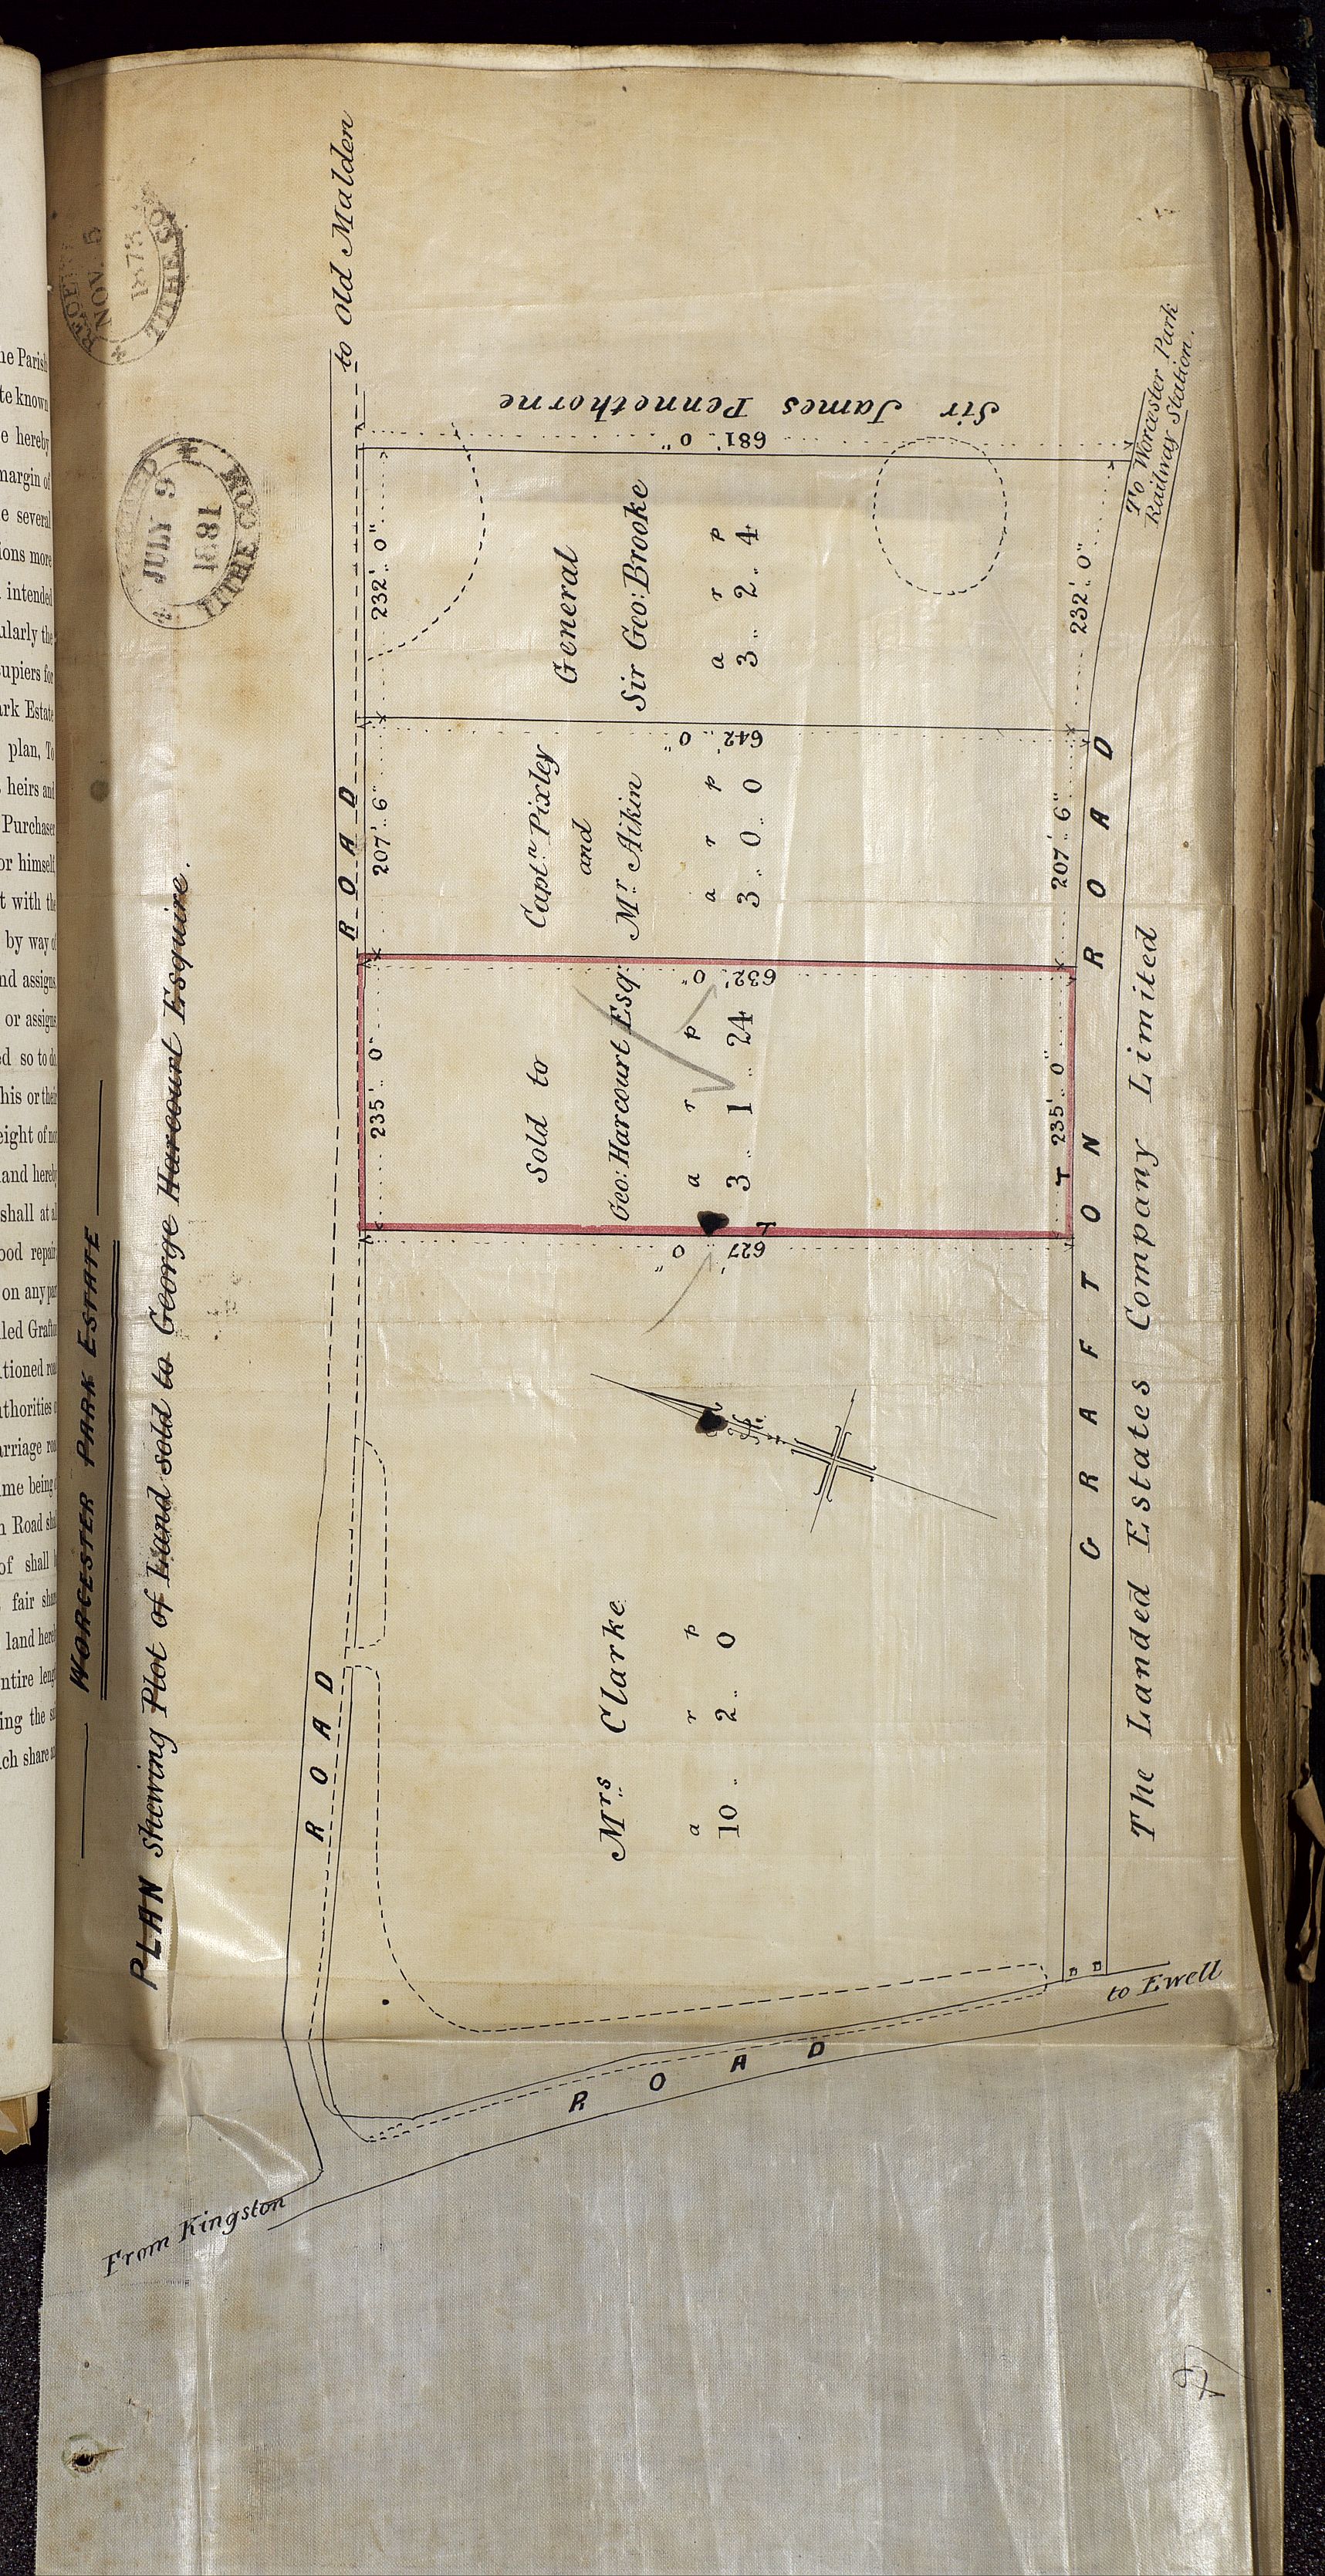 WORCESTER PARK ESTATE
PLAN shewing Plot of Land sold to George Harcourt Esquire.
NOV. 5
1873
TITHE CO
JULY 9
1891
TITHE COM
to Old Malden
ROAD
ROAD
From Kingston
ROAD
to Ewell
Mrs Clarke
a r p
10 .. 2 .. 0
627' 0"
235' .. 0"
Sold to
Geo: Harcourt Esq:
a r p
3 .. 1 .. 24
235' .. 0"
632' 0"
207' .. 6"
Captn. Pixley
and
Mr. Aikin
a r p
3 .. 0 .. 0
207' .. 6"
642' .. 0"
232' .. 0"
General
Sir Geo: Brooke
a r p
3 .. 2 .. 4
232' .. 0"
681' .. 0"
Sir James Pennethorne
GRAFTON ROAD
To Worcester Park
Railway Station.
The Landed Estates Company Limited
he Parish
te known
e hereby
margin of
e several
ions more
intended
ularly the
upiers for
ark Estate
plan, To
heirs and
Purchaser
or himself
t with the
by way of
nd assigns
or assigns
ed so to do
his or their
eight of not
land hereby
shall at al
ood repair
on any par
lled Grafton
tioned roa
uthorities o
arriage roa
ime being
n Road sha
of shall b
fair share
land hereb
ntire leng
ing the sa
ch share a